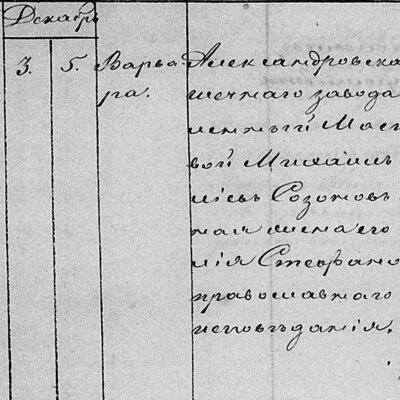 Декабрь
3. 5. Варва
ра.
Александровска
шечнаго завода
менный Мас
вой Михаилъ
іевъ Созоновъ
ная жена его
мія Стефано
православнаго
исповѣданія.